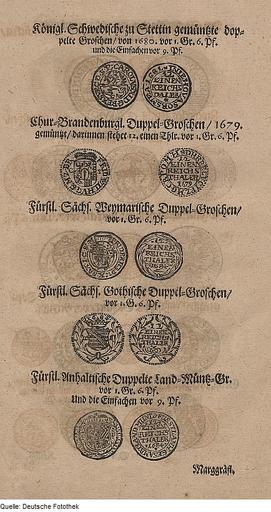 Königl. Schwedische zu Stettin gemüntzte dop-
pelte Groschen / von 1680. vor 1. Gr. 6. Pf.
und die Einfachen vor 9. Pf.
Chur-Brandenburgl. Duppel-Groschen / 1679.
gemüntzt / darinnen stehet 12. einen Thlr. vor 1. Gr. 6. Pf.
EINEN
REICHS
THALER
1679
Fürstl. Sächs. Weymarische Duppel-Groschen /
vor 1. Gr. 6. Pf.
EINEN
REICHS
THALER
Fürstl. Sächs. Gothische Duppel-Groschen /
vor 1. G. 6. Pf.
EINEN
REICHS
THALER
Fürstl. Anhaltische Duppelte Land-Müntz-Gr.
vor 1. Gr. 6. Pf.
Und die Einfachen vor 9. Pf.
EINEN
REICHS
THALER
Marggräfl.
Quelle: Deutsche Fotothek